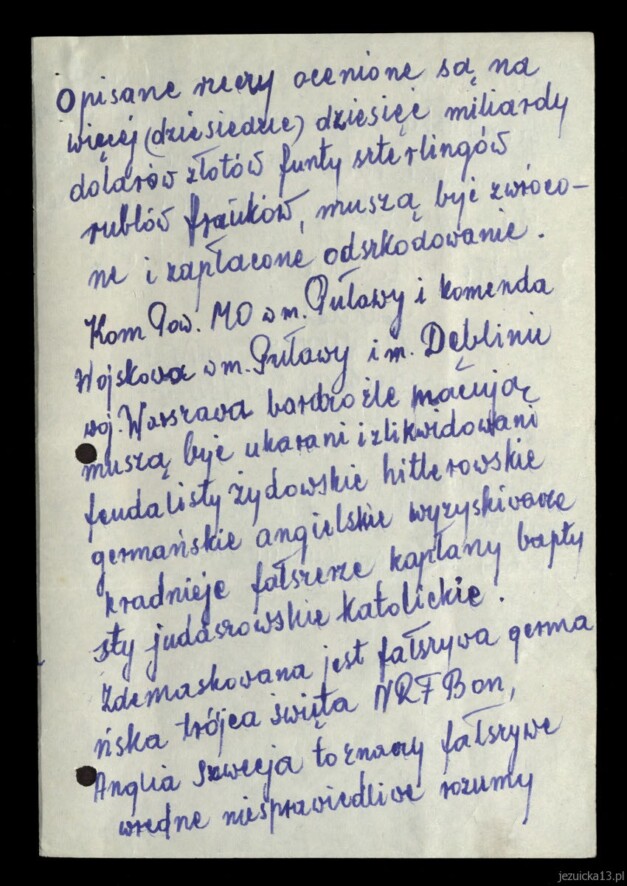 Opisane rzeczy ocenione są na
więcej (dziesiedzie) dziesięć miliardy
dolarów złotów funty szterlingów
rublów franków, muszą być zwróco-
ne i zapłacone odszkodowanie.
Kom Pow. MO w m. Puławy i komenda
Wojskowa w m. Puławy i m. Dęblinie
woj. Warszawa bardzo źle pracują
muszą być ukarani i zlikwidowani
feudalisty żydowskie hitlerowskie
germańskie angielskie wyzyskiwacze
kradnieje fałszerze kapłany bapty
sty judaszowskie katolickie.
Zdemaskowana jest fałszywa germa
ńska trójca święta NRF Bon,
Anglia Szwecja to znaczy fałszywe
wredne niesprawiedliwe rozumy
jezuicka13.pl